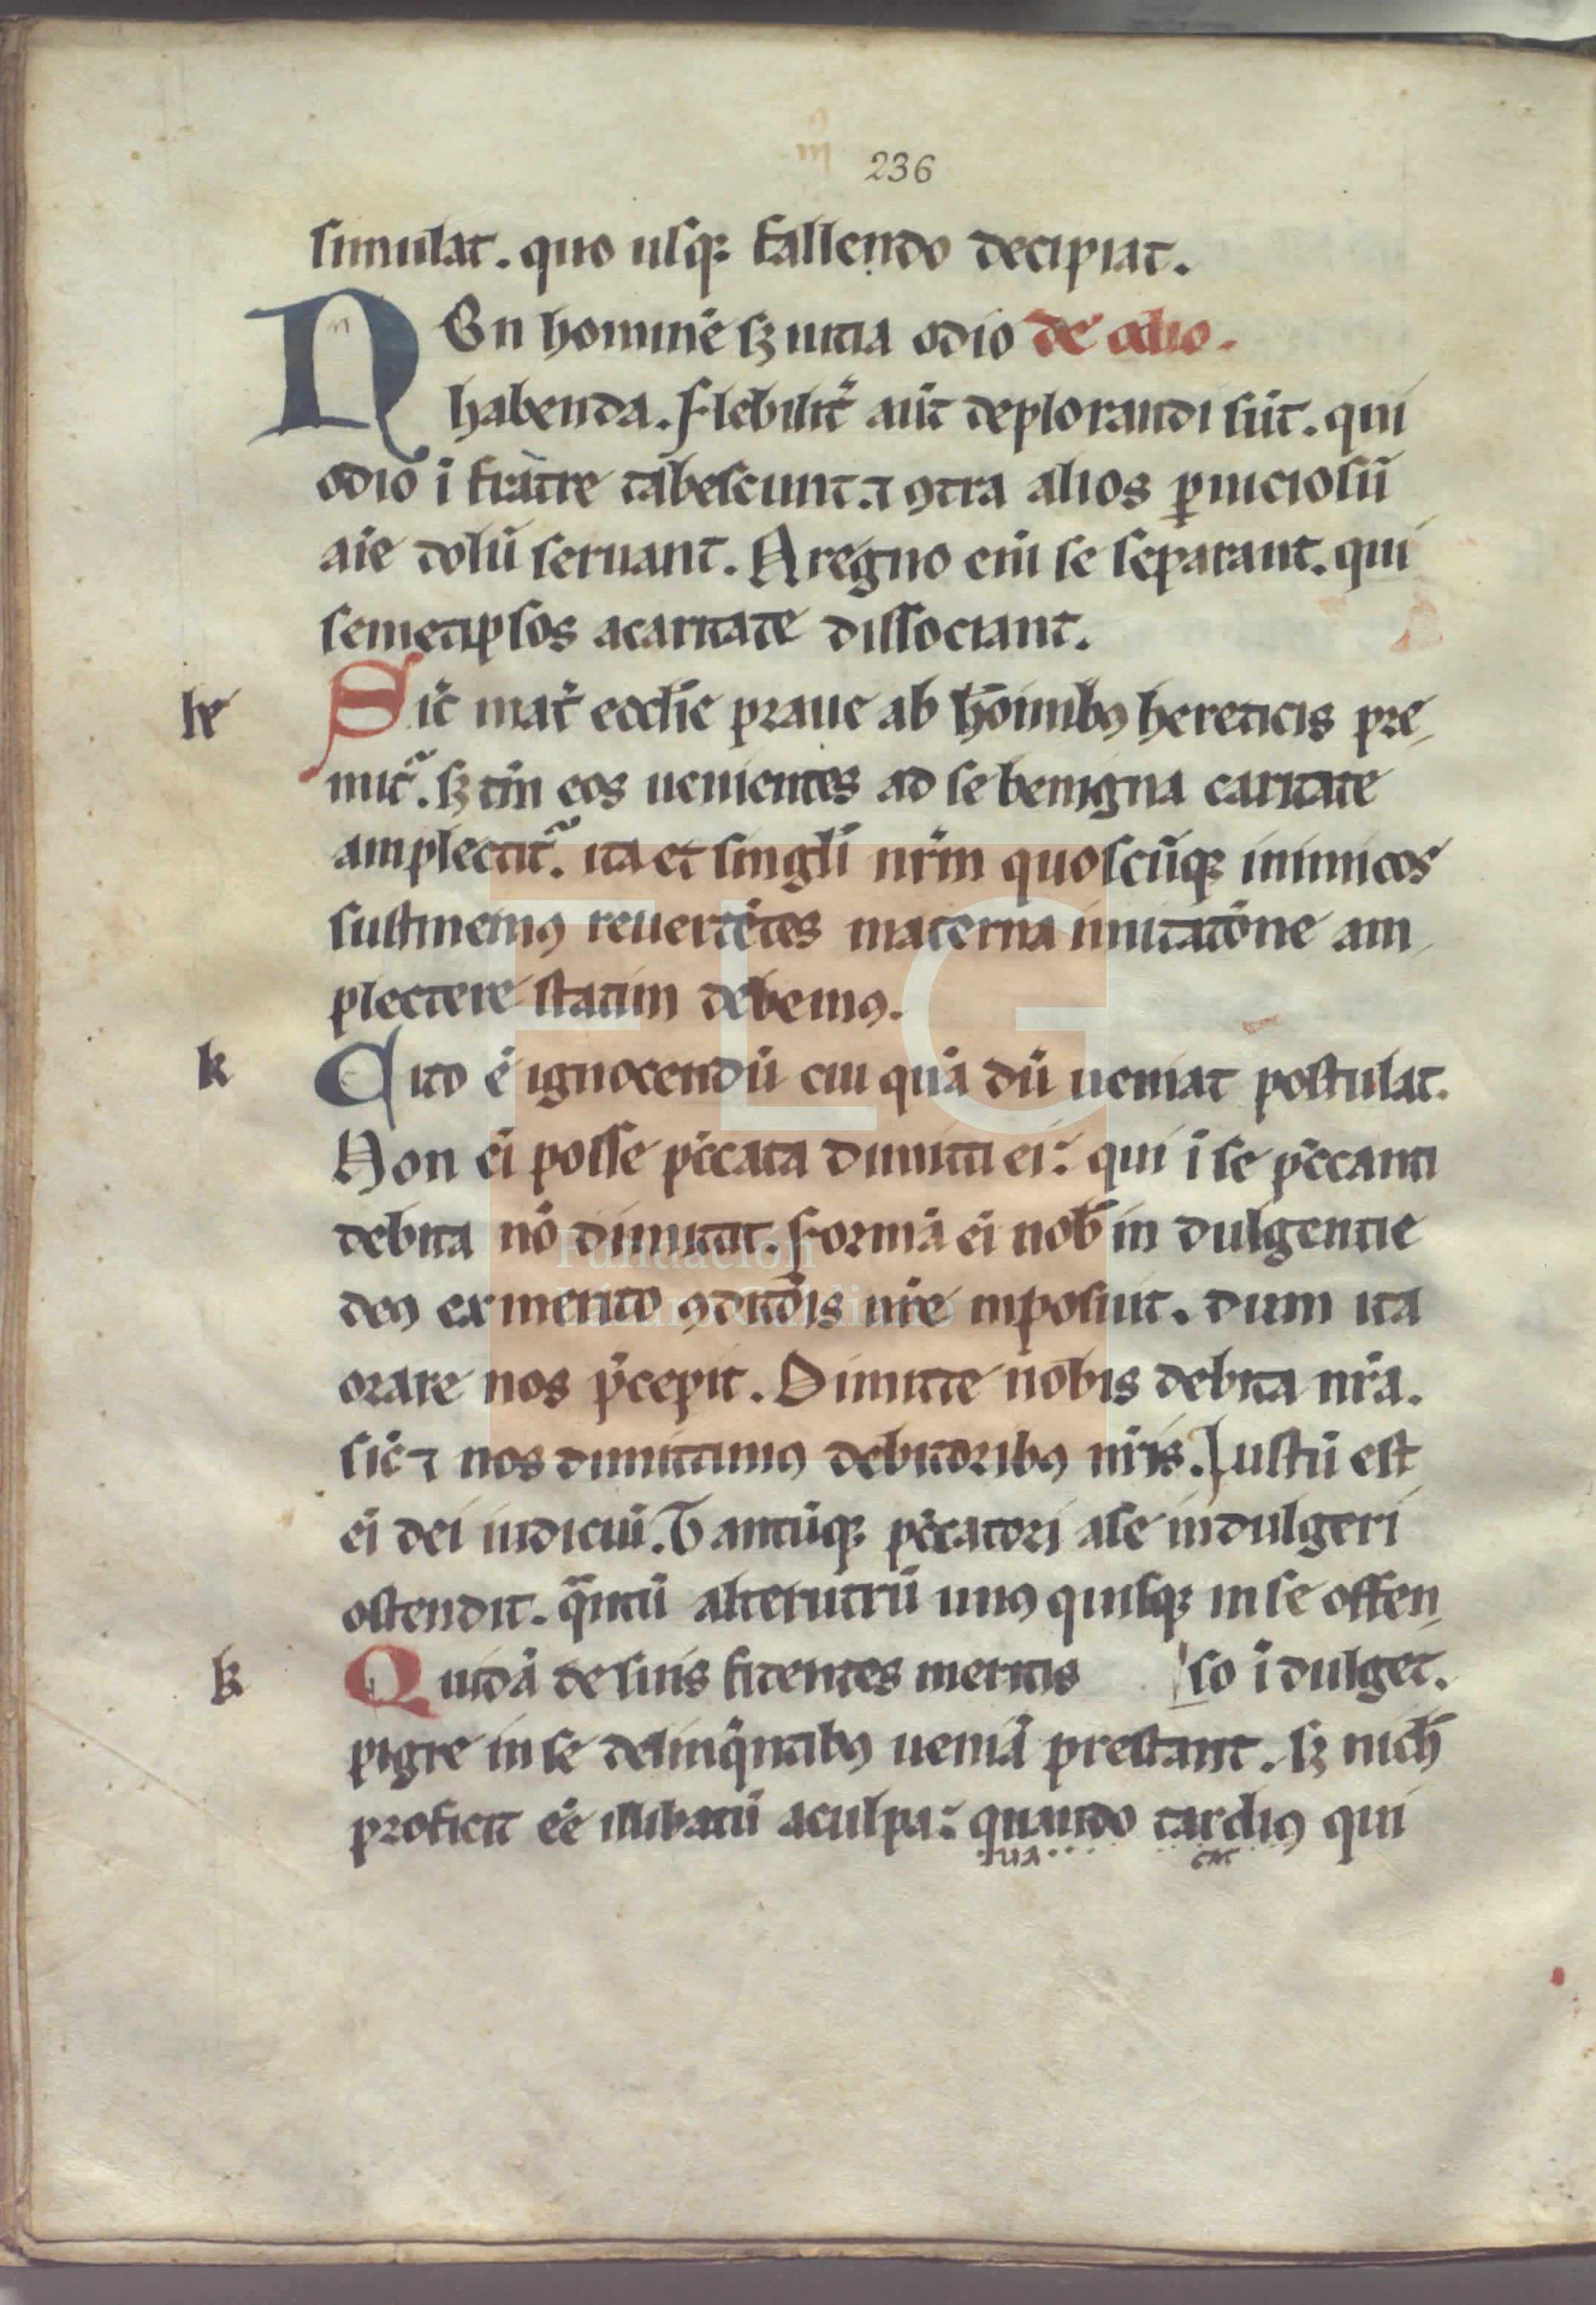 236
simulat. quo usq; fallendo decipiat.
Non hominē sꝫ uitia odio de odio.
habenda. Flebilit̄ aūt deplorandi sūt. qui
odio ī fratre tabescunt. ⁊ ꝯtra alios ꝑniciosū
aīe dolū seruant. A regno enī se separant. qui
semetipsos acaritate dissociant.
Sic̄ mat̄ ecclīe praue ab hōinibꝯ hereticis pre,
mit̄. sꝫ tm̄ eos uenientes ad se benigna caritate
amplectit̄. ita et singlī nr̄m quoscūq; inimicos
sustinemꝯ reuertētes materna imitatōne am,
plectere statim debemꝯ.
k Cito ē ignocendū cui quā dū ueniat postulat.
Non eī posse pc̄cata dimitti ei: qui ī se pc̄canti
debita nō dimitat. Formā eī nob̄ in dulgentie
deꝯ ex merito ꝯditōis nr̄e inposuit. dum ita
orare nos p̄cepit. Dimitte nobis debita nr̄a.
sic̄ ⁊ nos dimittimꝯ debitoribꝯ nr̄is. Iustū est
eī dei iudiciū. Tantūq; pc̄catori ase indulgeri
ostendit. qͣntū alterutrū unꝯ quisq; in se offen,
Quidā de suis fidentes meritis so īdulget.
pigre in se delinqͣntibꝯ ueniā prestant. sꝫ nich̄
proficit eē illibatū aculpa: quando tardiꝯ qui